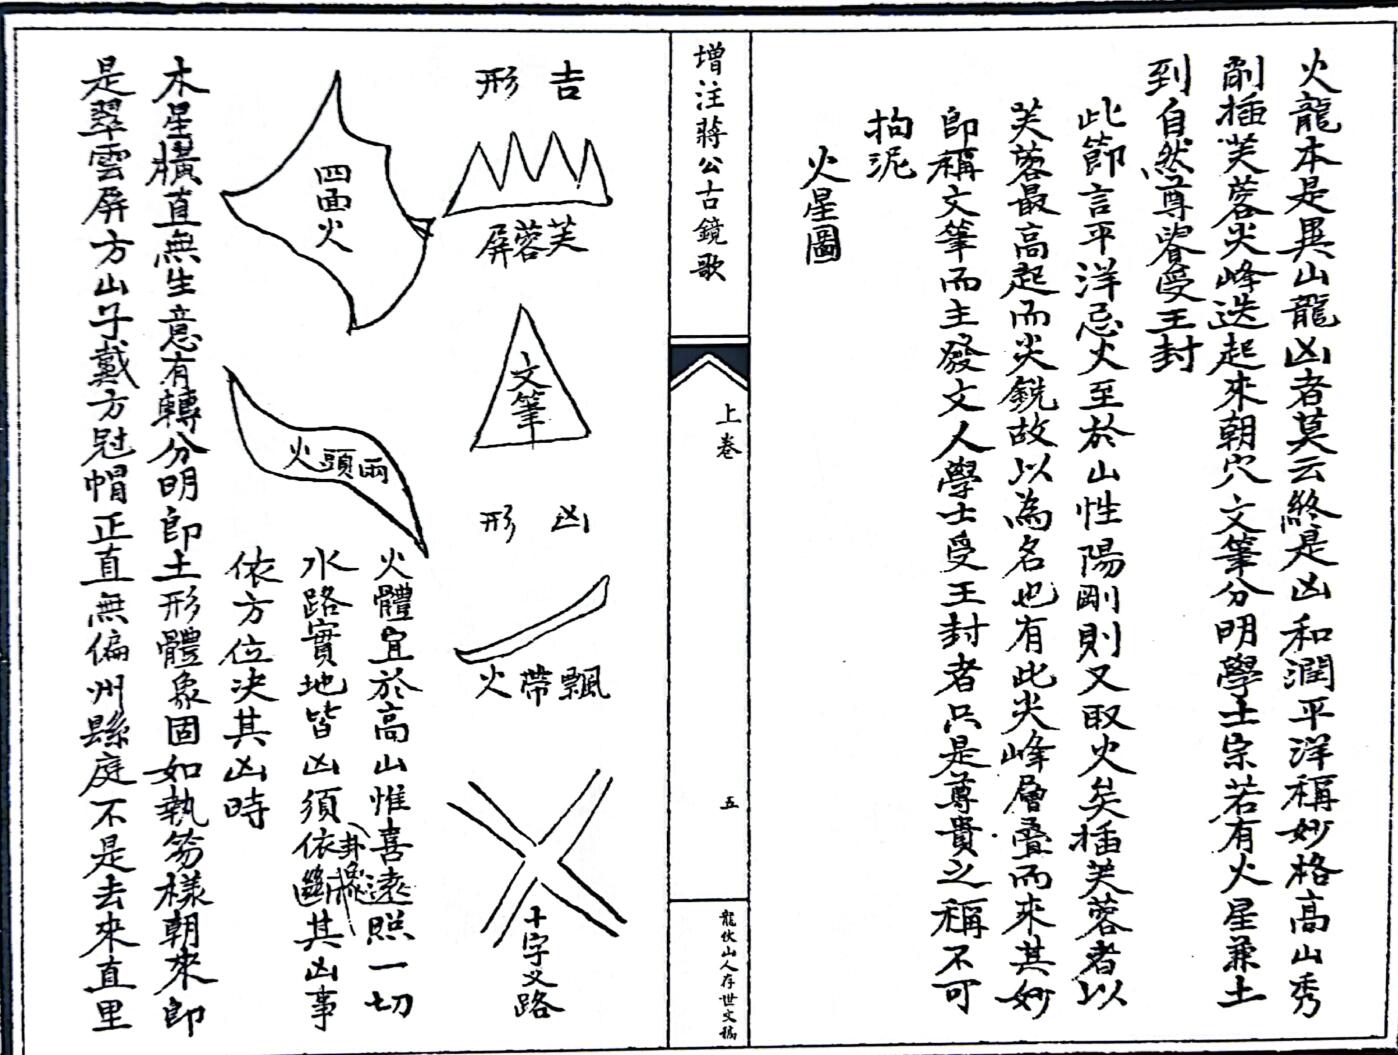 火龍本是異山龍凶者莫云終是凶和潤平洋稱妙格高山秀
削插芙蓉火峰迭起來朝穴文筆分明學士宗若有火星兼土
到自然尊眷受王封
此節言平洋忌火至於山性陽剛則又取火矣插芙蓉者以
芙蓉最高起而尖銳故以為名也有此尖峰層疊而來其妙
即稱文筆而主發文人學士受王封者只是尊貴之稱不可
拘泥
火星圖
增注蔣公古鏡歌
上卷
五
龍伏山人存世文稿
吉形
芙蓉屏
文筆
凶形
飄帶火
十字叉路
四面火
兩頭火
火體宜於高山惟喜遠照一切
水路實地皆凶須依卦象斷其凶事
依方位決其凶時
木星橫直無生意有轉分明即土形體象固如執笏樣朝來即
是翠雲屏方山子戴方冠帽正直無偏州縣庭不是去來直里